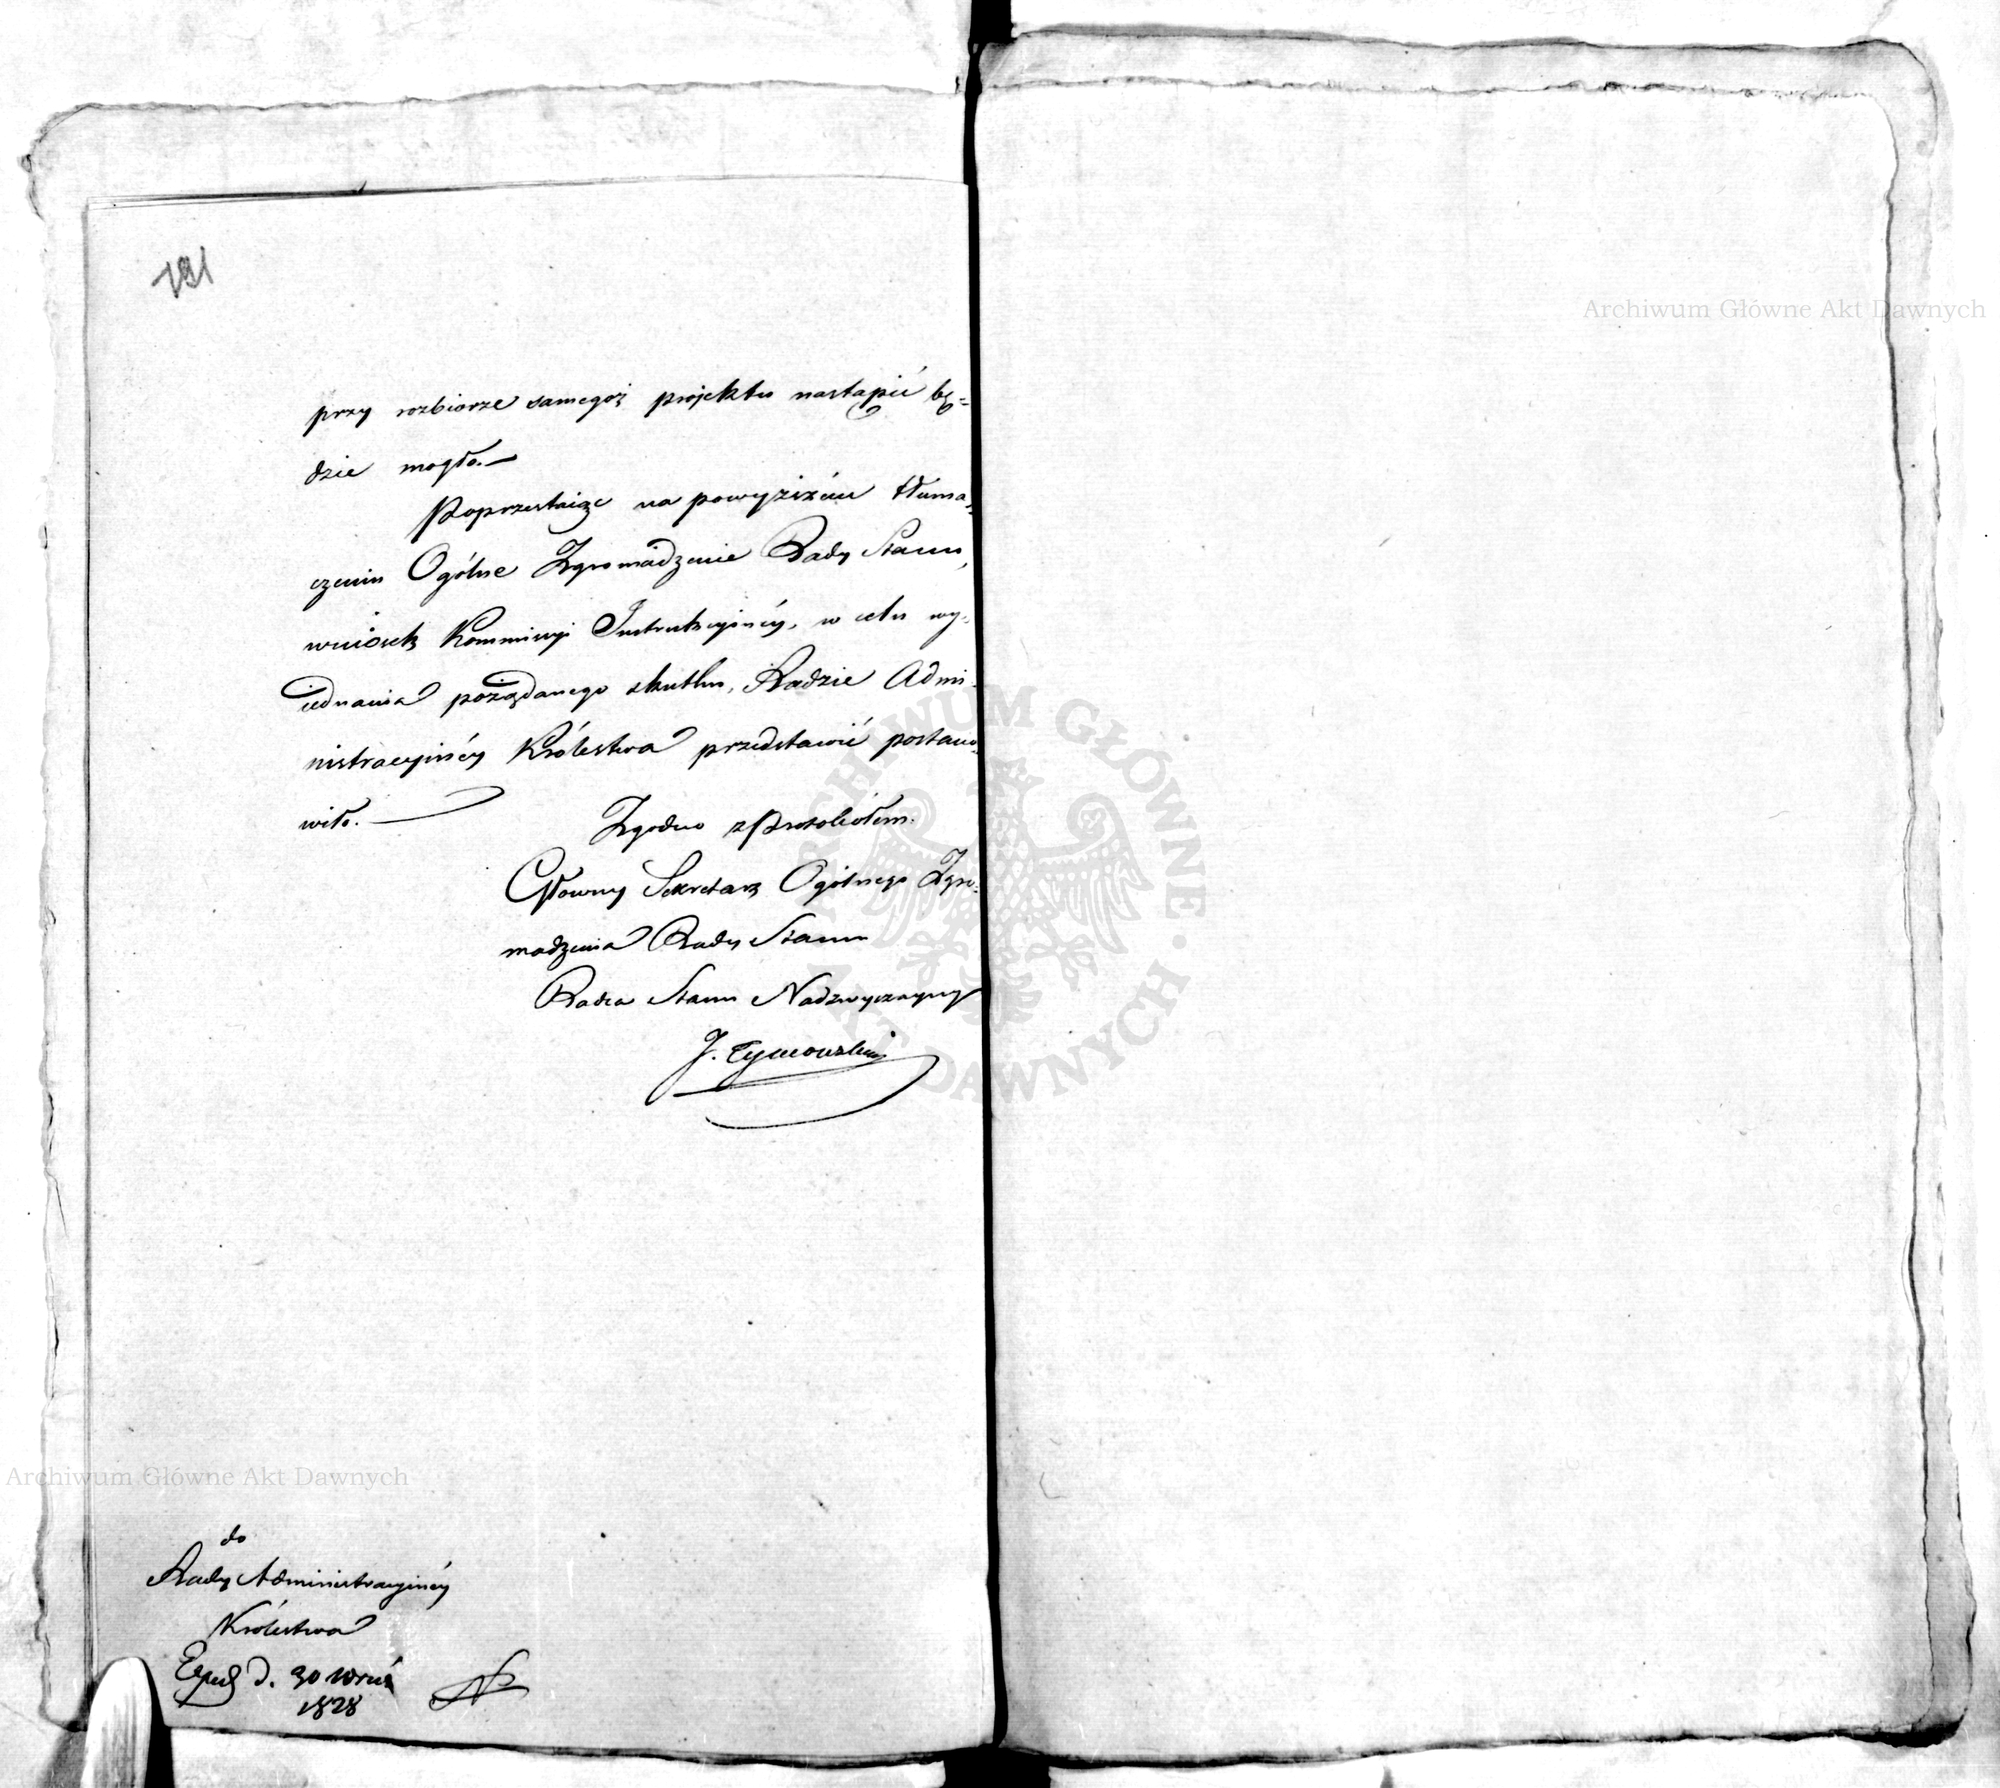 191
przy rozbiorze samegoż projektu nastąpić bę=
dzie mogło.—
Poprzestaiąc na powyższém tłuma=
czeniu Ogólne Zgromadzenie Rady Stanu,
wniosek Kommissyi Instrukcyinéy, w celu wy=
iednania pożądanego skutku, Radzie Admi=
nistracyinéy Królestwa przedstawić postano=
wiło.—
Zgodno z Protokółem.
Główny Sekretarz Ogólnego Zgro=
madzenia Rady Stanu
Radca Stanu Nadzwyczayny
J. Tymowski
do
Rady Administracyinéy
Królestwa
Exped d. 30 Wrześ
1828
Archiwum Główne Akt Dawnych
Archiwum Główne Akt Dawnych
ARCHIWUM GŁÓWNE • AKT DAWNYCH •